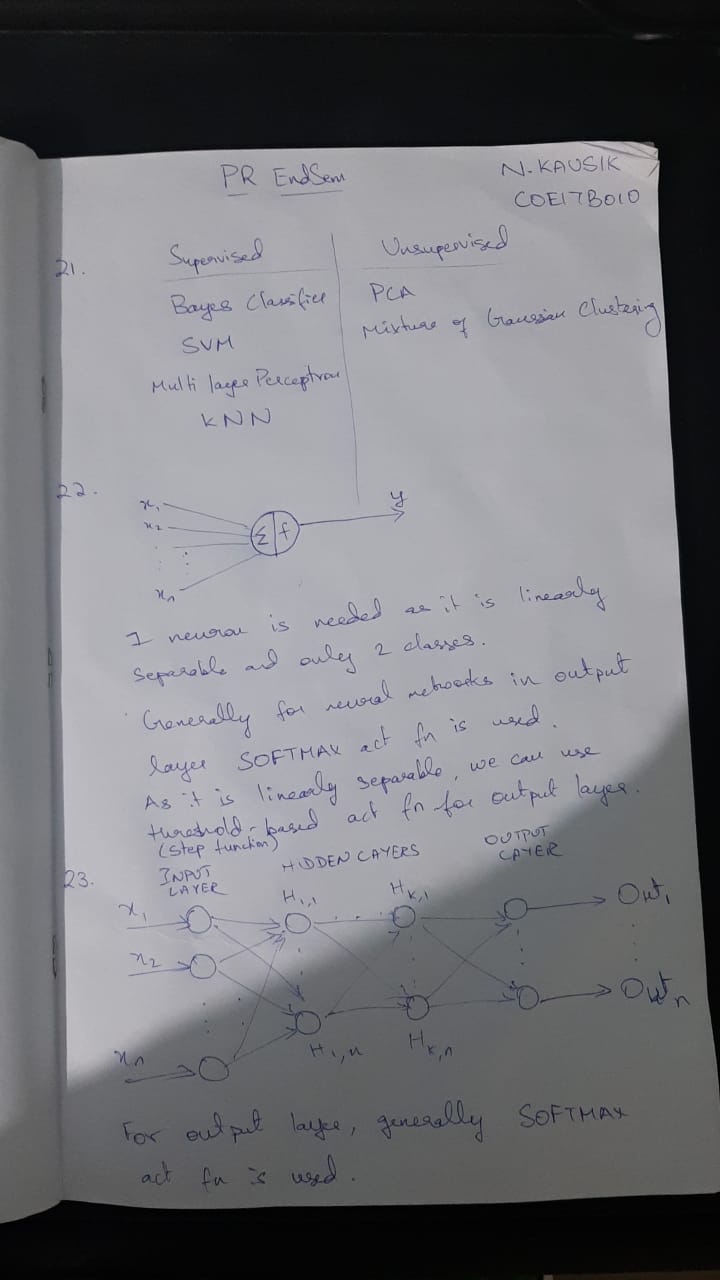 PR EndSem
N. KAUSIK
COE17B010
21.
Supervised
Unsupervised
Bayes Classifier
PCA
SVM
Mixture of Gaussian Clustering
Multi layer Perceptron
KNN
22.
x₁
x₂
xn
Σ f
y
1 neuron is needed as it is linearly
separable and only 2 classes.
Generally for neural networks in output
layer SOFTMAX act fn is used.
As it is linearly separable, we can use
threshold-based act fn for output layer.
(step function)
23.
INPUT
LAYER
HIDDEN LAYERS
OUTPUT
LAYER
x₁
H1,1
Hk,1
Out₁
x₂
xn
H1,n
Hk,n
Outn
For output layer, generally SOFTMAX
act fn is used.